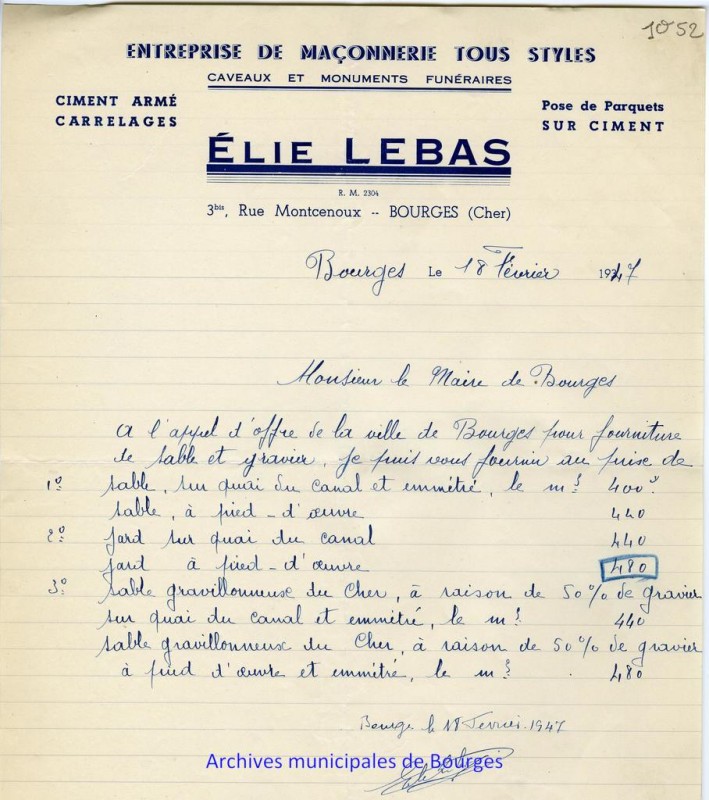 1052
ENTREPRISE DE MAÇONNERIE TOUS STYLES
CAVEAUX ET MONUMENTS FUNÉRAIRES
CIMENT ARMÉ
CARRELAGES
Pose de Parquets
SUR CIMENT
ÉLIE LEBAS
R. M. 2304
3bis, Rue Montcenoux -- BOURGES (Cher)
Bourges Le 18 Février 1947
Monsieur le Maire de Bourges
A l'appel d'offre de la ville de Bourges pour fourniture
de sable et gravier, je puis vous fournir au prise de
1º sable, sur quai du canal et emmétré, le m3 400
sable, à pied-d'œuvre 440
2º jard sur quai du canal 440
jard à pied-d'œuvre 480
3º sable gravillonneux du Cher, à raison de 50% de gravier
sur quai du canal et emmétré, le m3 440
sable gravillonneux du Cher, à raison de 50% de gravier
à pied d'œuvre et emmétré, le m3 480
Bourges le 18 Fevrier 1947
Archives municipales de Bourges